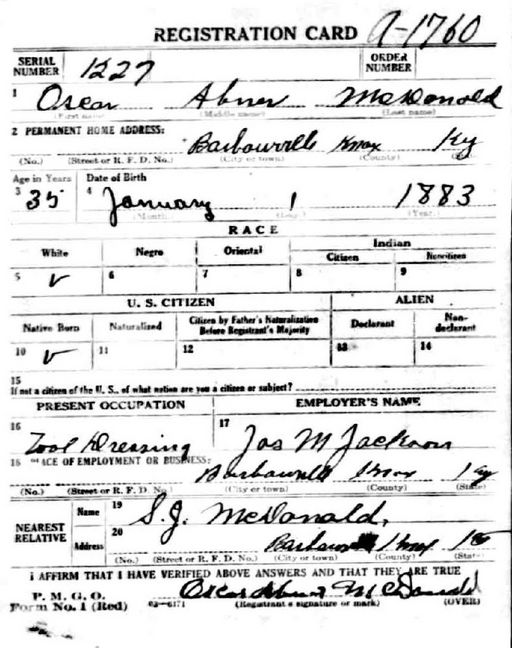 REGISTRATION CARD A-1760
SERIAL NUMBER 1227 ORDER NUMBER
1 Oscar Abner McDonald
(First name) (Middle name) (Last name)
2 PERMANENT HOME ADDRESS: Barbourville Knox Ky
(No.) (Street or R. F. D. No.) (City or town) (County)
Age in Years Date of Birth
3 35 4 January 1 1883
(Month) (Day) (Year)
RACE
White Negro Oriental Indian
Citizen Noncitizen
5 V 6 7 8 9
U. S. CITIZEN ALIEN
Native Born Naturalized Citizen by Father's Naturalization Before Registrant's Majority Declarant Non-declarant
10 V 11 12 13 14
15
If not a citizen of the U. S., of what nation are you a citizen or subject?
PRESENT OCCUPATION EMPLOYER'S NAME
16 Tool Dressing 17 Jas M Jackson
PLACE OF EMPLOYMENT OR BUSINESS: Barbourville Knox Ky
(No.) (Street or R. F. D. No.) (City or town) (County) (State)
NEAREST RELATIVE Name 19 S. J. McDonald,
Address 20 Knox
(No.) (Street or R. F. D. No.) (City or town) (County) (State)
I AFFIRM THAT I HAVE VERIFIED ABOVE ANSWERS AND THAT THEY ARE TRUE
P. M. G. O.
Form No. 1 (Red) 03-6171 Oscar Abner McDonald
(Registrant's signature or mark) (OVER)